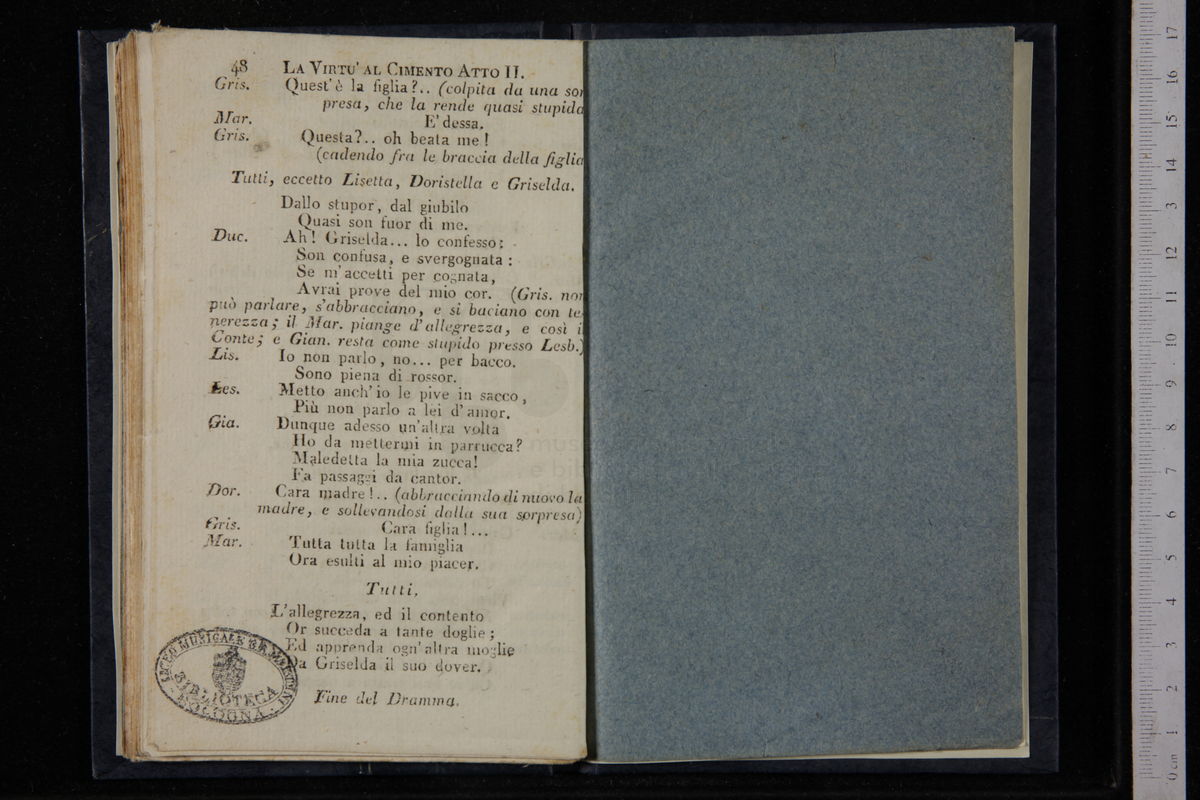 48 LA VIRTU' AL CIMENTO ATTO II.
Gris. Quest' è la figlia?.. (colpita da una sor
presa, che la rende quasi stupida
Mar. E' dessa.
Gris. Questa?.. oh beata me!
(cadendo fra le braccia della figlia
Tutti, eccetto Lisetta, Doristella e Griselda.
Dallo stupor, dal giubilo
Quasi son fuor di me.
Duc. Ah! Griselda... lo confesso:
Son confusa, e svergognata:
Se m'accetti per cognata,
Avrai prove del mio cor. (Gris. non
può parlare, s'abbracciano, e si baciano con te-
nerezza; il Mar. piange d'allegrezza, e così i
Conte; e Gian. resta come stupido presso Lesb.)
Lis. Io non parlo, no... per bacco.
Sono piena di rossor.
Les. Metto anch' io le pive in sacco,
Più non parlo a lei d'amor.
Gia. Dunque adesso un'altra volta
Ho da mettermi in parrucca?
Maledetta la mia zucca!
Fa passaggi da cantor.
Dor. Cara madre!.. (abbracciando di nuovo la
madre, e sollevandosi dalla sua sorpresa)
Gris. Cara figlia!...
Mar. Tutta tutta la famiglia
Ora esulti al mio piacer.
Tutti.
L'allegrezza, ed il contento
Or succeda a tante doglie;
Ed apprenda ogn'altra moglie
Da Griselda il suo dover.
Fine del Dramma.
LICEO MUSICALE
BIBLIOTECA
BOLOGNA
museo
e bib
17
16
15
14
3
12
11
10
9
8
7
6
5
4
3
2
1
0 cm